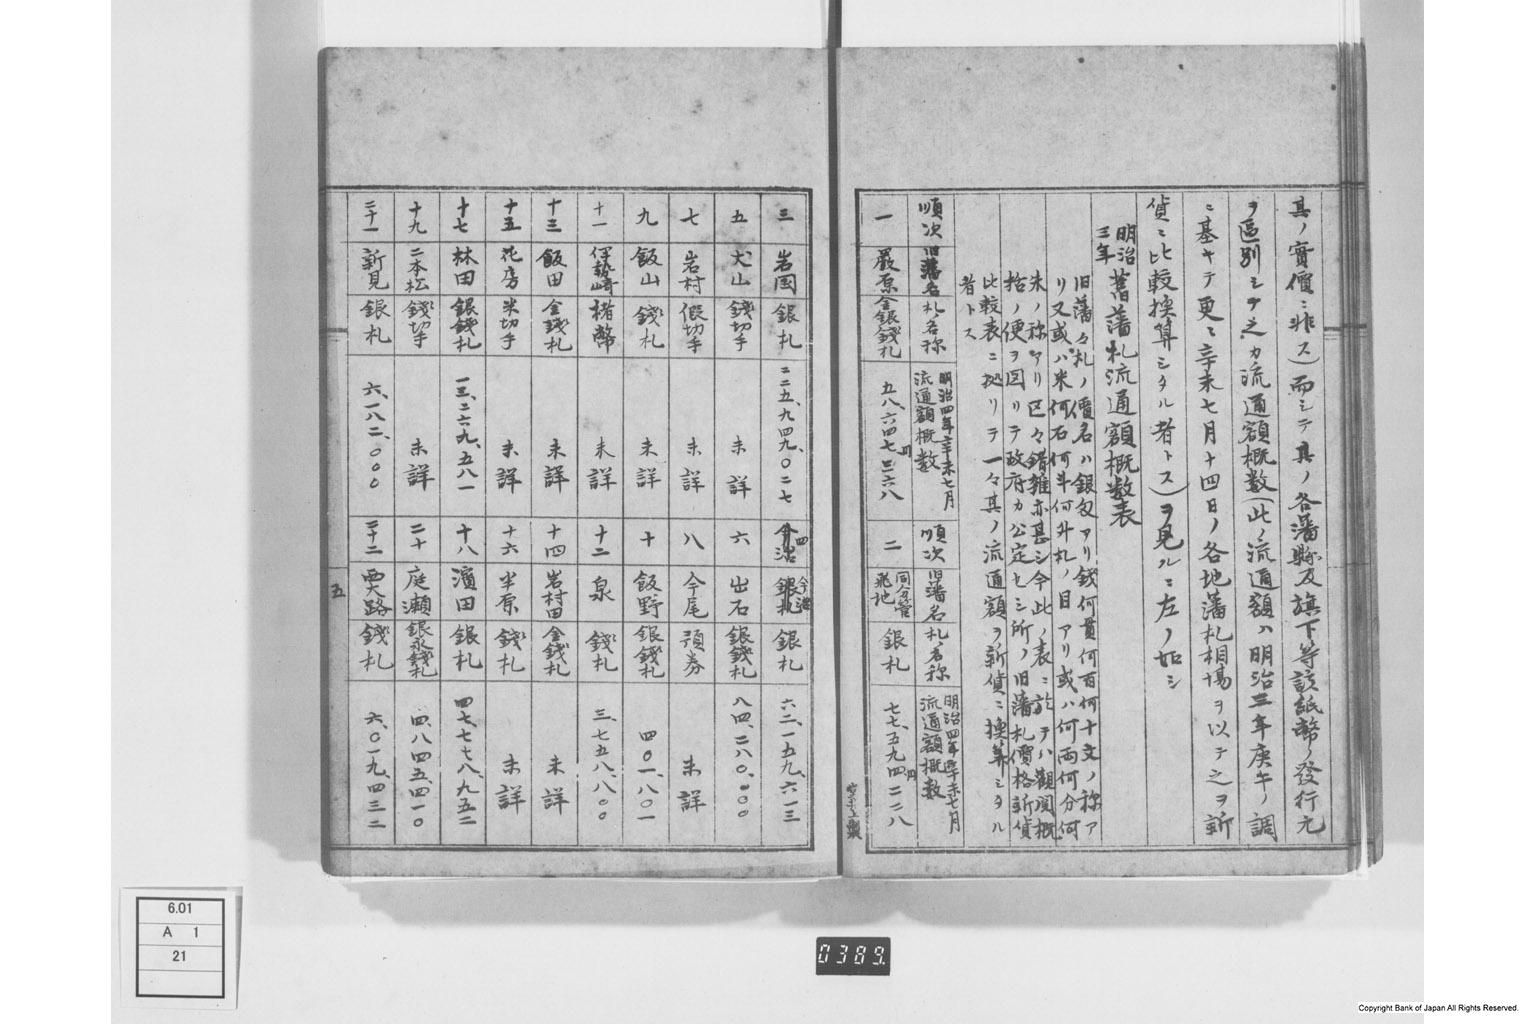 其ノ實價ニ非ス)而シテ其ノ各藩縣及旗下等該紙幣ノ發行元
ヲ區別シテ之カ流通額概数(此ノ流通額ハ明治三年庚午ノ調
ニ基キテ更ニ辛未七月十四日ノ各地藩札相場ヲ以テ之ヲ新
貨ニ比較換算シタル者トス)ヲ見ルニ左ノ如シ
明治三年 舊藩札流通額概数表
旧藩々札ノ價名ハ銀匁アリ錢何貫何百何十文ノ称ア
リ又或ハ米何石何斗何升札ノ目アリ或ハ何両何分何
朱ノ称アリ区々錯雑亦甚シ今此ノ表ニ於テハ觀閲概
括ノ便ヲ図リテ政府カ公定セシ所ノ旧藩札價格新貨
比較表ニ拠リテ一々其ノ流通額ヲ新貨ニ換算シタル
者トス
順次 旧藩名 札名称 明治四年辛未七月流通額概数 順次 旧藩名 札名称 明治四年辛未七月流通額概数
一 嚴原 金銀錢札 五八、六四七円三六八 二 同分管飛地 銀札 七七、五九四円二二八
三 岩国 銀札 二二五、九四九、〇二七 四 今治 銀札 六二、一五九、六一三
五 犬山 錢切手 未詳 六 出石 銀錢札 八四、二八〇、〇〇〇
七 岩村 假切手 未詳 八 今尾 預券 未詳
九 飯山 錢札 未詳 十 飯野 銀錢札 四〇一、八〇一
十一 伊勢崎 楮幣 未詳 十二 泉 錢札 三、七五八、八〇〇
十三 飯田 金錢札 未詳 十四 岩村田 金錢札 未詳
十五 花房 米切手 未詳 十六 半原 錢札 未詳
十七 林田 銀錢札 一三、二六九、五八一 十八 濱田 銀札 四七、七七八、九五二
十九 二本松 錢切手 未詳 二十 庭瀬 銀永錢札 四、八四五、四一〇
二十一 新見 銀札 六、一八二、〇〇〇 二十二 西大路 錢札 六、〇一九、四三二
五
6.01
A 1
21
0389
Copyright Bank of Japan All Rights Reserved.